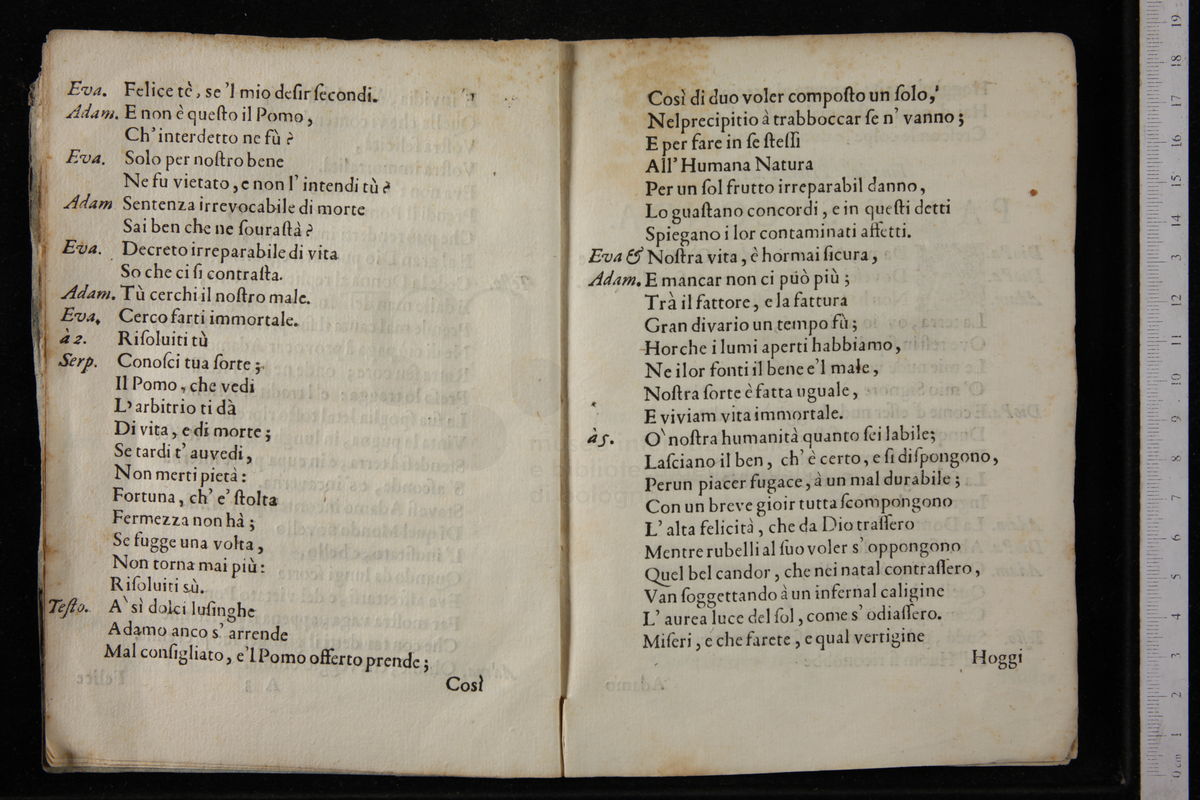 Eva. Felice tè, se 'l mio desir secondi.
Adam. E non è questo il Pomo,
Ch' interdetto ne fù?
Eva. Solo per nostro bene
Ne fu vietato, e non l' intendi tù?
Adam Sentenza irrevocabile di morte
Sai ben che ne sourastà?
Eva. Decreto irreparabile di vita
So che ci si contrasta.
Adam. Tù cerchi il nostro male.
Eva. Cerco farti immortale.
à 2. Risoluiti tù
Serp. Conosci tua sorte;
Il Pomo, che vedi
L' arbitrio ti dà
Di vita, e di morte;
Se tardi t' auvedi,
Non merti pietà:
Fortuna, ch' e' stolta
Fermezza non hà;
Se fugge una volta,
Non torna mai più:
Risoluiti sù.
Testo. A' sì dolci lusinghe
Adamo anco s' arrende
Mal consigliato, e'l Pomo offerto prende;
Così
Così di duo voler composto un solo,
Nelprecipitio à trabboccar se n' vanno;
E per fare in se stessi
All' Humana Natura
Per un sol frutto irreparabil danno,
Lo guastano concordi, e in questi detti
Spiegano i lor contaminati affetti.
Eva & Nostra vita, è hormai sicura,
Adam. E mancar non ci può più;
Trà il fattore, e la fattura
Gran divario un tempo fù;
Hor che i lumi aperti habbiamo,
Ne i lor fonti il bene e'l male,
Nostra sorte è fatta uguale,
E viviam vita immortale.
à 5. O' nostra humanità quanto sei labile;
Lasciano il ben, ch' è certo, e si dispongono,
Perun piacer fugace, à un mal durabile;
Con un breve gioir tutta scompongono
L' alta felicità, che da Dio trassero
Mentre rubelli al suo voler s' oppongono
Quel bel candor, che nei natal contrassero,
Van soggettando à un infernal caligine
L' aurea luce del sol, come s' odiassero.
Miseri, e che farete, e qual vertigine
Hoggi